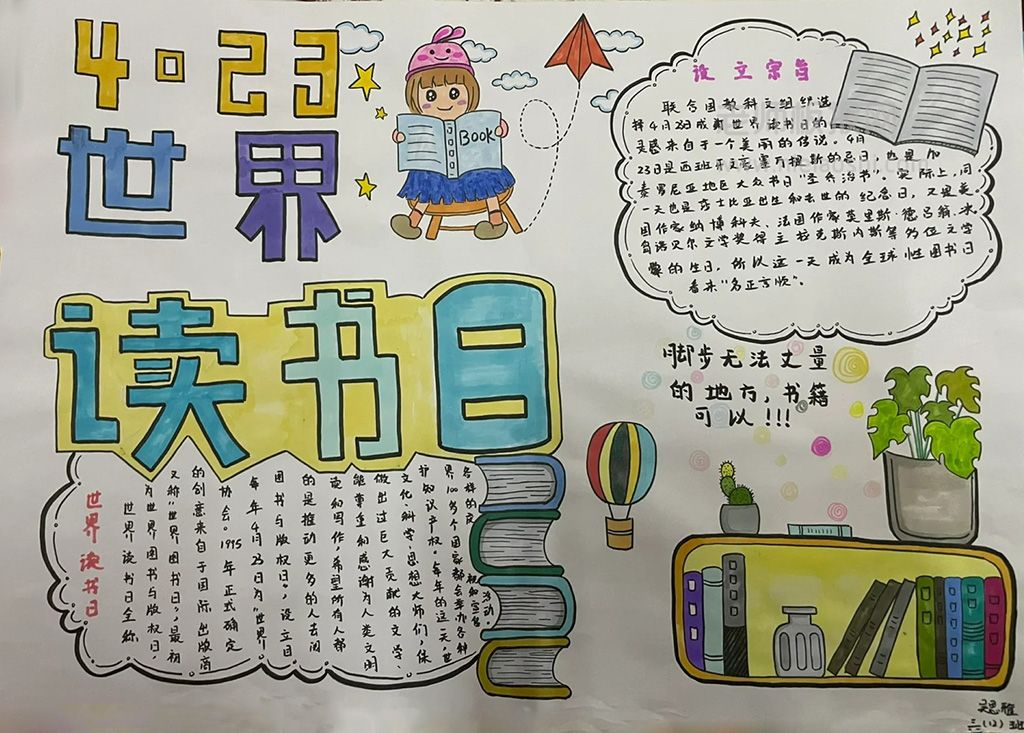 4·23
世界
读书日
Book
设立宗旨
联合国教科文组织选
择4月23日成为世界读书日的
灵感来自于一个美丽的传说。4月
23日是西班牙文豪塞万提斯的忌日,也是加
泰罗尼亚地区大众节日"圣乔治节"。实际上,同
一天也是莎士比亚出生和去世的纪念日,又是美
国作家纳博科夫、法国作家莫里斯·德吕翁、冰
岛诺贝尔文学奖得主拉克斯内斯等多位文学
家的生日,所以这一天成为全球性图书日
看来"名正言顺"。
脚步无法丈量
的地方,书籍
可以!!!
世界读书日
世界读书日全称
为世界图书与版权日,
又称"世界图书日",最初
的创意来自于国际出版商
协会。1995年正式确定
每年4月23日为"世界
图书与版权日",设立目
的是推动更多的人去阅
读和写作,希望所有人都
能尊重和感谢为人类文明
做出过巨大贡献的文学、
文化、科学、思想大师们,保
护知识产权。每年的这一天,世
界100多个国家都会举办各种
各样的庆祝和宣传活动。
三(12)班